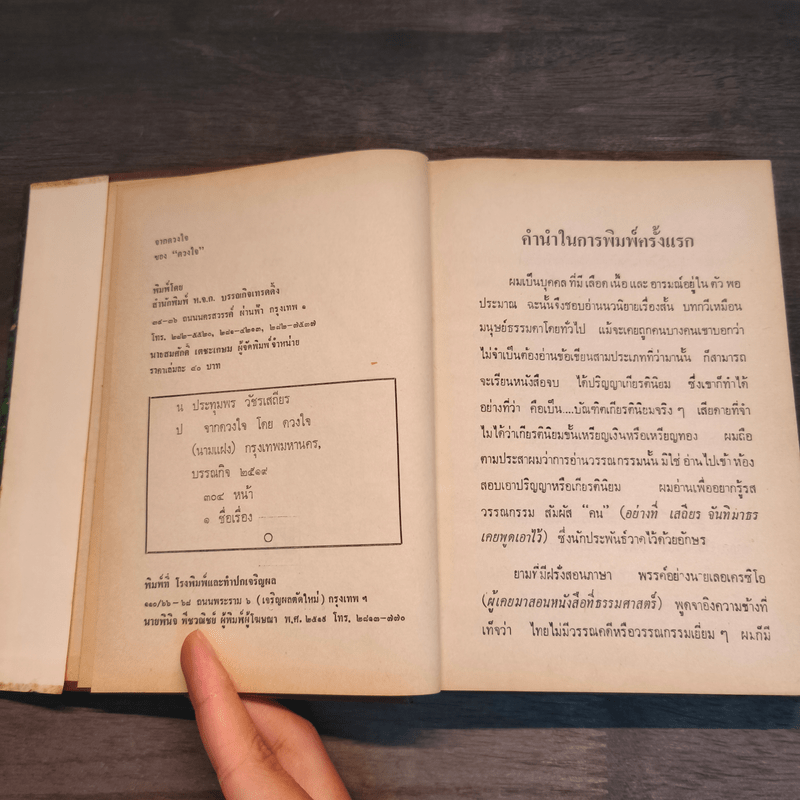 จากดวงใจ
ของ "ดวงใจ"
พิมพ์โดย
สำนักพิมพ์ ท.จ.ก. บรรณกิจเทรดดิ้ง
๓๔-๓๖ ถนนนครสวรรค์ ผ่านฟ้า กรุงเทพ ๑
โทร. ๒๘๒-๕๕๒๐, ๒๘๑-๔๒๑๓, ๒๘๒-๗๕๓๗
นายสมศักดิ์ เตชะเกษม ผู้จัดพิมพ์จำหน่าย
ราคาเล่มละ ๔๐ บาท
น ประทุมพร วัชรเสถียร
ป จากดวงใจ โดย ดวงใจ
(นามแฝง) กรุงเทพมหานคร,
บรรณกิจ ๒๕๑๙
๓๐๔ หน้า
๑ ชื่อเรื่อง
พิมพ์ที่ โรงพิมพ์และทำปกเจริญผล
๑๑๐/๖๖-๖๘ ถนนพระราม ๖ (เจริญผลตัดใหม่) กรุงเทพ ฯ
นายพินิจ พืชวณิชย์ ผู้พิมพ์ผู้โฆษณา พ.ศ. ๒๕๑๙ โทร. ๒๘๑๓-๗๗๐
คำนำในการพิมพ์ครั้งแรก
ผมเป็นบุคคล ที่มี เลือด เนื้อ และ อารมณ์อยู่ใน ตัว พอ
ประมาณ ฉะนั้นจึงชอบอ่านนวนิยายเรื่องสั้น บทกวีเหมือน
มนุษย์ธรรมดาโดยทั่วไป แม้จะเคยถูกคนบางคนเขาบอกว่า
ไม่จำเป็นต้องอ่านข้อเขียนสามประเภทที่ว่ามานั้น ก็สามารถ
จะเรียนหนังสือจบ ได้ปริญญาเกียรตินิยม ซึ่งเขาก็ทำได้
อย่างที่ว่า คือเป็น....บัณฑิตเกียรตินิยมจริง ๆ เสียดายที่จำ
ไม่ได้ว่าเกียรตินิยมชั้นเหรียญเงินหรือเหรียญทอง ผมถือ
ตามประสาผมว่าการอ่านวรรณกรรมนั้น มิใช่ อ่านไปเข้า ห้อง
สอบเอาปริญญาหรือเกียรตินิยม ผมอ่านเพื่ออยากรู้รส
วรรณกรรม สัมผัส "คน" (อย่างที่ เสถียร จันทิมาธร
เคยพูดเอาไว้) ซึ่งนักประพันธ์วาดไว้ด้วยอักษร
ยามที่มีฝรั่งสอนภาษา พรรค์อย่างนายเลอเครซิโอ
(ผู้เคยมาสอนหนังสือที่ธรรมศาสตร์) พูดจาอิงความข้างที่
เท็จว่า ไทยไม่มีวรรณคดีหรือวรรณกรรมเยี่ยม ๆ ผมก็มี